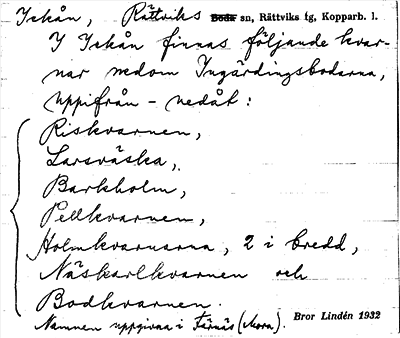 Iskån, Rättviks Boda sn, Rättviks tg, Kopparb. l.
I Iskån finnas följande kvar-
nar nedom Ingärdingsbodarna,
uppifrån - nedåt:
Riskvarnen,
Larsväska,
Barkholm,
Pellkvarnen,
Holmkvarnarna, 2 i bredd,
Näskarlkvarnen och
Bodkvarnen.
Namnen uppgivna i Färnäs (Mora).
Bror Lindén 1932